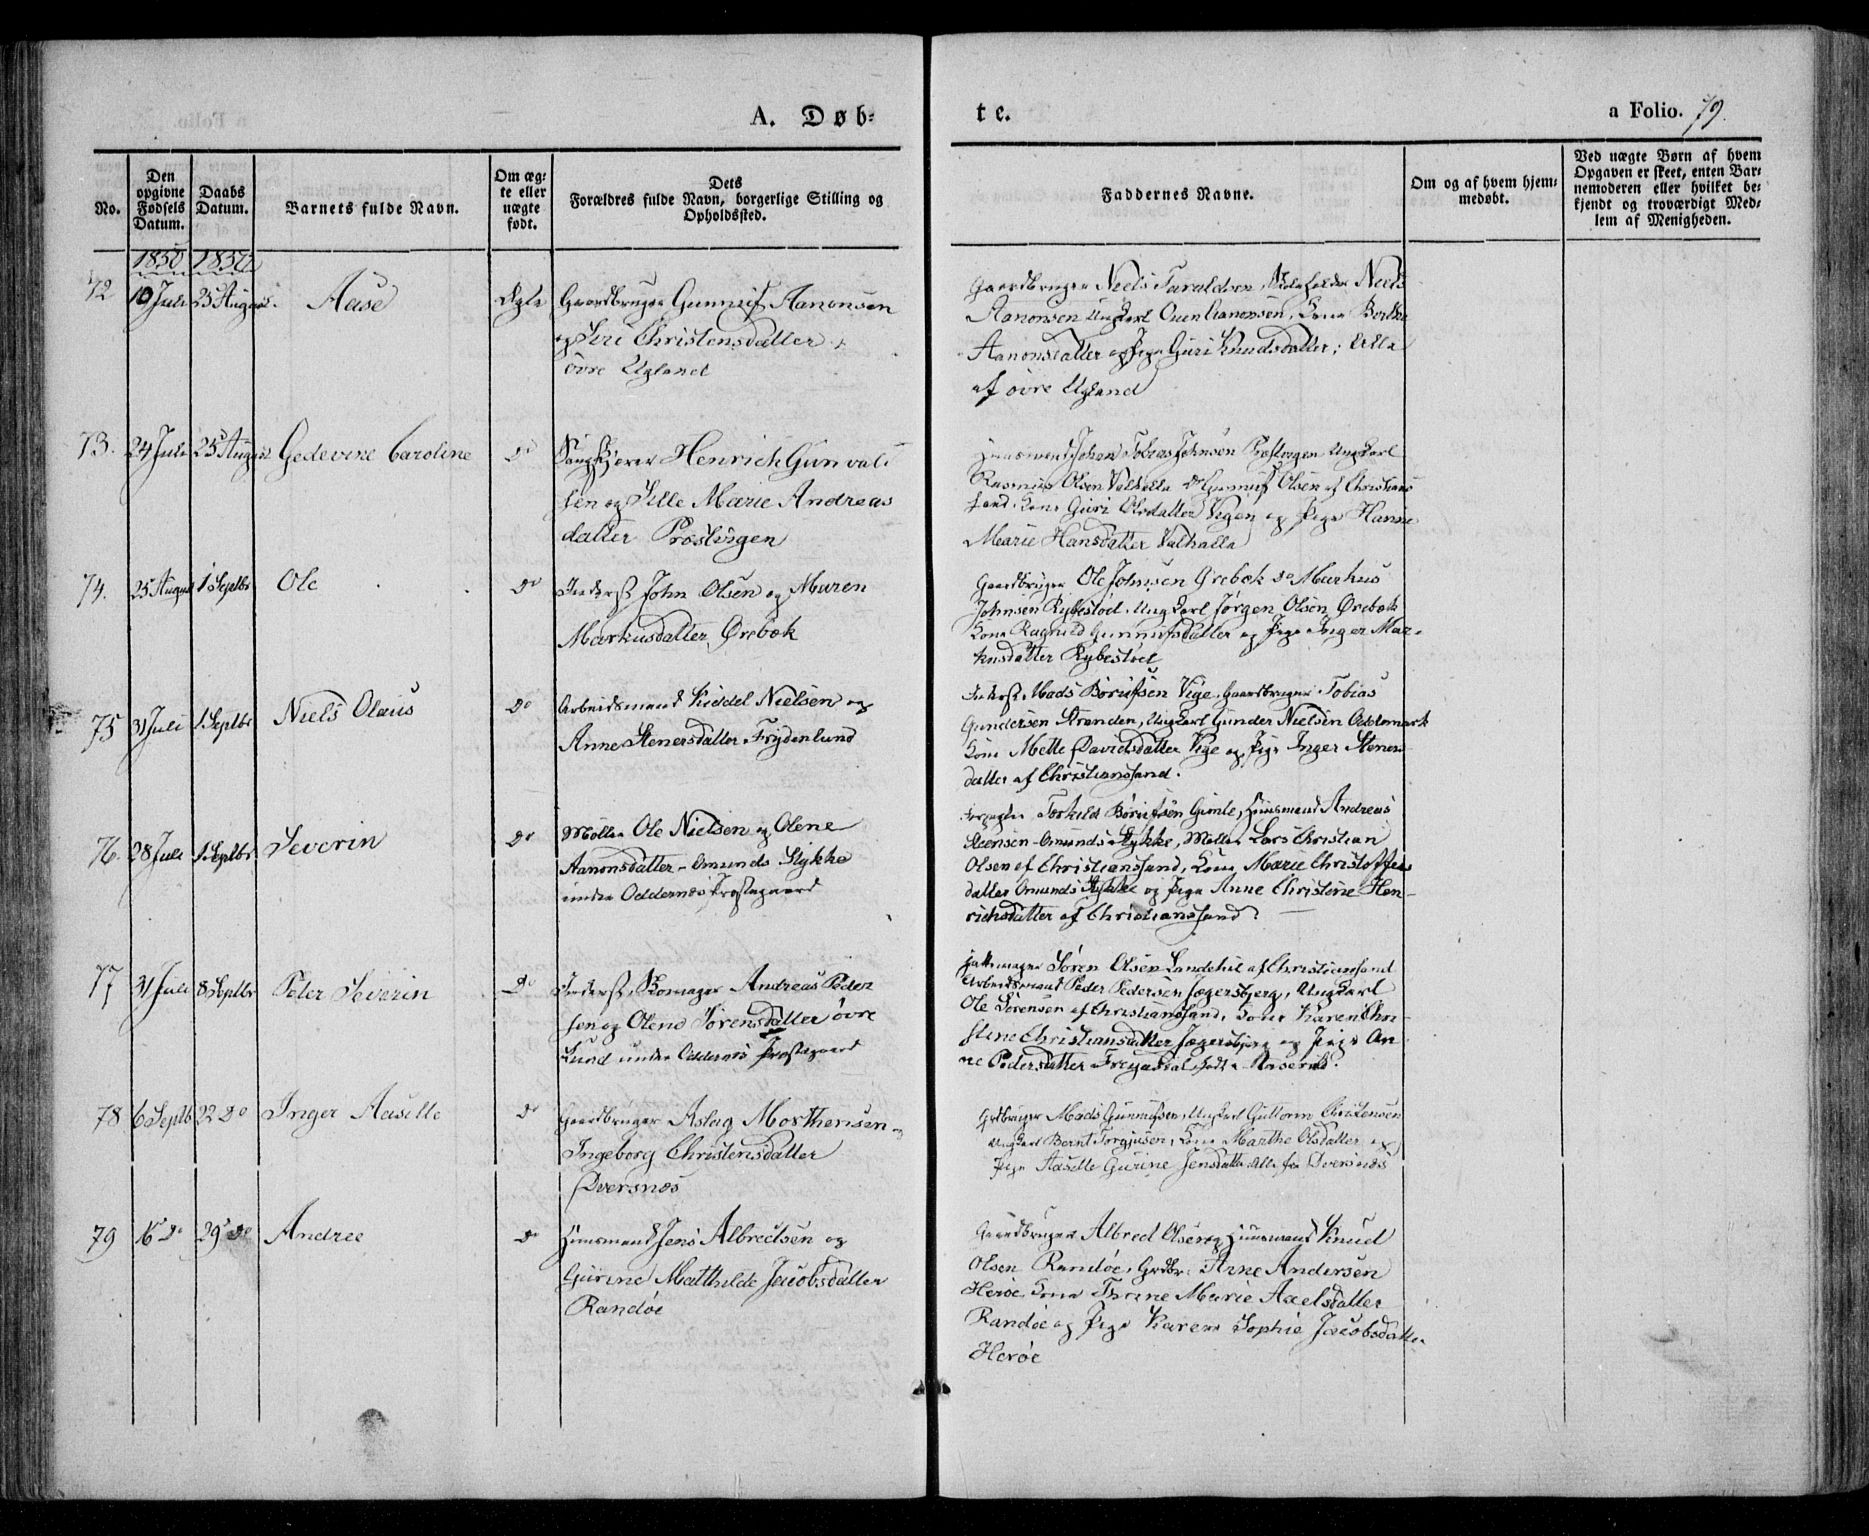 A. Døb-
te.
a Folio. 79.
No.
Den opgivne Fødsels Datum.
Daabs Datum.
Barnets fulde Navn.
Om ægte eller uægte født.
Dets Forældres fulde Navn, borgerlige Stilling og Opholdssted.
Faddernes Navne.
Om og af hvem hjemmedøbt.
Ved uægte Børn af hvem Opgaven er skeet, enten Barnemoderen eller hvilket bekjendt og troværdigt Medlem af Menigheden.
1850 1850
72 10 Juli 25 August Aase Ægte Gaardbruger Gunnuf Aanonsen
og Siri Christensdatter
øvre Ugland
Gaardbruger Neels Taraldsen, Neels
Aanonsen Ungkarl Ouen Aanonsen, Kone Berthe
Aanonsdatter og Pige Guri Knudsdatter; Alle
af øvre Ugland
73. 24 Juli 25 August Gedevine Caroline do Henrich Gunvald
sen og Sille Marie Andreas
datter Prostvigen
Huusmand Johan Tobias Johnsen Prostvigen Ungkarl
Rasmus Olsen Valhalla do Gunnuf Olsen af Christians
sand. Kone Guri Olsdatter Vigen og Pige Hanne
Marie Hansdatter Valhalla
74. 25 August 1 Septbr Ole do Inderst John Olsen og Maren
Markusdatter Ørebæk
Gaardbruger Ole Johnsen Ørebæk do Markus
Johnsen Rybestøl. Ungkarl Jørgen Olsen Ørebæk
Kone Ragnild Gunnufsdatter og Pige Inger Mar-
kusdatter Rybestøel
75 31 Juli 1 Septbr Niels Olaus do Arbeidsmand Kiddel Nielsen og
Anne Stenersdatter Frydenlund
Inderst Mads Børufsen Vige. Gaardbruger Tobias
Gundersen Stranden, Ungkarl Gunder Nielsen Oddemark
Kone Mette Davidsdatter Vige og Pige Inger Steners
datter af Christianssand.
76. 28 Juli 1 Septbr Severin do Møller Ole Nielsen og Olene
Aanonsdatter - Omunds Stykke
under Oddernes Præstegaard
Forpagter Torkild Børufsen Gimle, Huusmand Andreas
Steensen Omunds Stykke, Møller Lars Christian
Olsen af Christianssand, Kone Marie Christoffers
datter Omunds Stykke og Pige Anne Christine Hen-
richsdatter af Christianssand.
77 31 Juli 8 Septbr Peder Severin do Inderst, Skomager Andreas Peder
sen og Olene Sørensdatter øvre
Lund under Oddernes Præstegaard
Søren Olsen Landehil af Christianssand
Arbeidsmand Peder Pedersen Jægersbjerg, Ungkarl
Ole Sørensen af Christianssand, Kone Karen Chri
stine Christiansdatter Jægersbjerg og Pige An
ne Pedersdatter
78 6 Septb 22 do Inger Aaselle do Gaardbruger Aslag Mosthensen og
Ingeborg Christensdatter
Dversnæs
Grdbruger Mads Gunnufsen, Ungkarl Guttorm Christensen
Ungkarl Bernt Torgjusen, Kone Marthe Olsdatter og
Pige Aaselle Gurine Jensdatter Alle fra Dversnæs
79 16 do 29 do Andree do Huusmand Jens Albrectsen og
Gurine Matthilde Jacobsdatter
Randøe
Gaardbruger Albred Olsen og Huusmand Knud
Olsen Randøe, Grdbr. Arne Andersen
Herøe Kone Thrine Marie Axelsdatter
Randøe og Pige Karen Sophie Jacobsdatter
Herøe